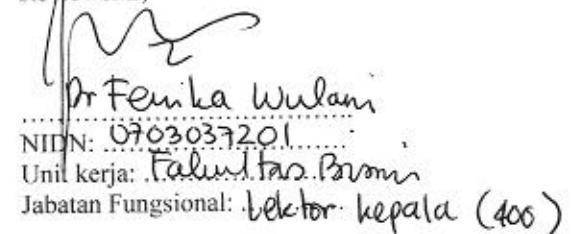 Dr Fenika Wulani
NIDN: 0703037201
Unit kerja: Fakultas Bisnis
Jabatan Fungsional: Lektor kepala (400)